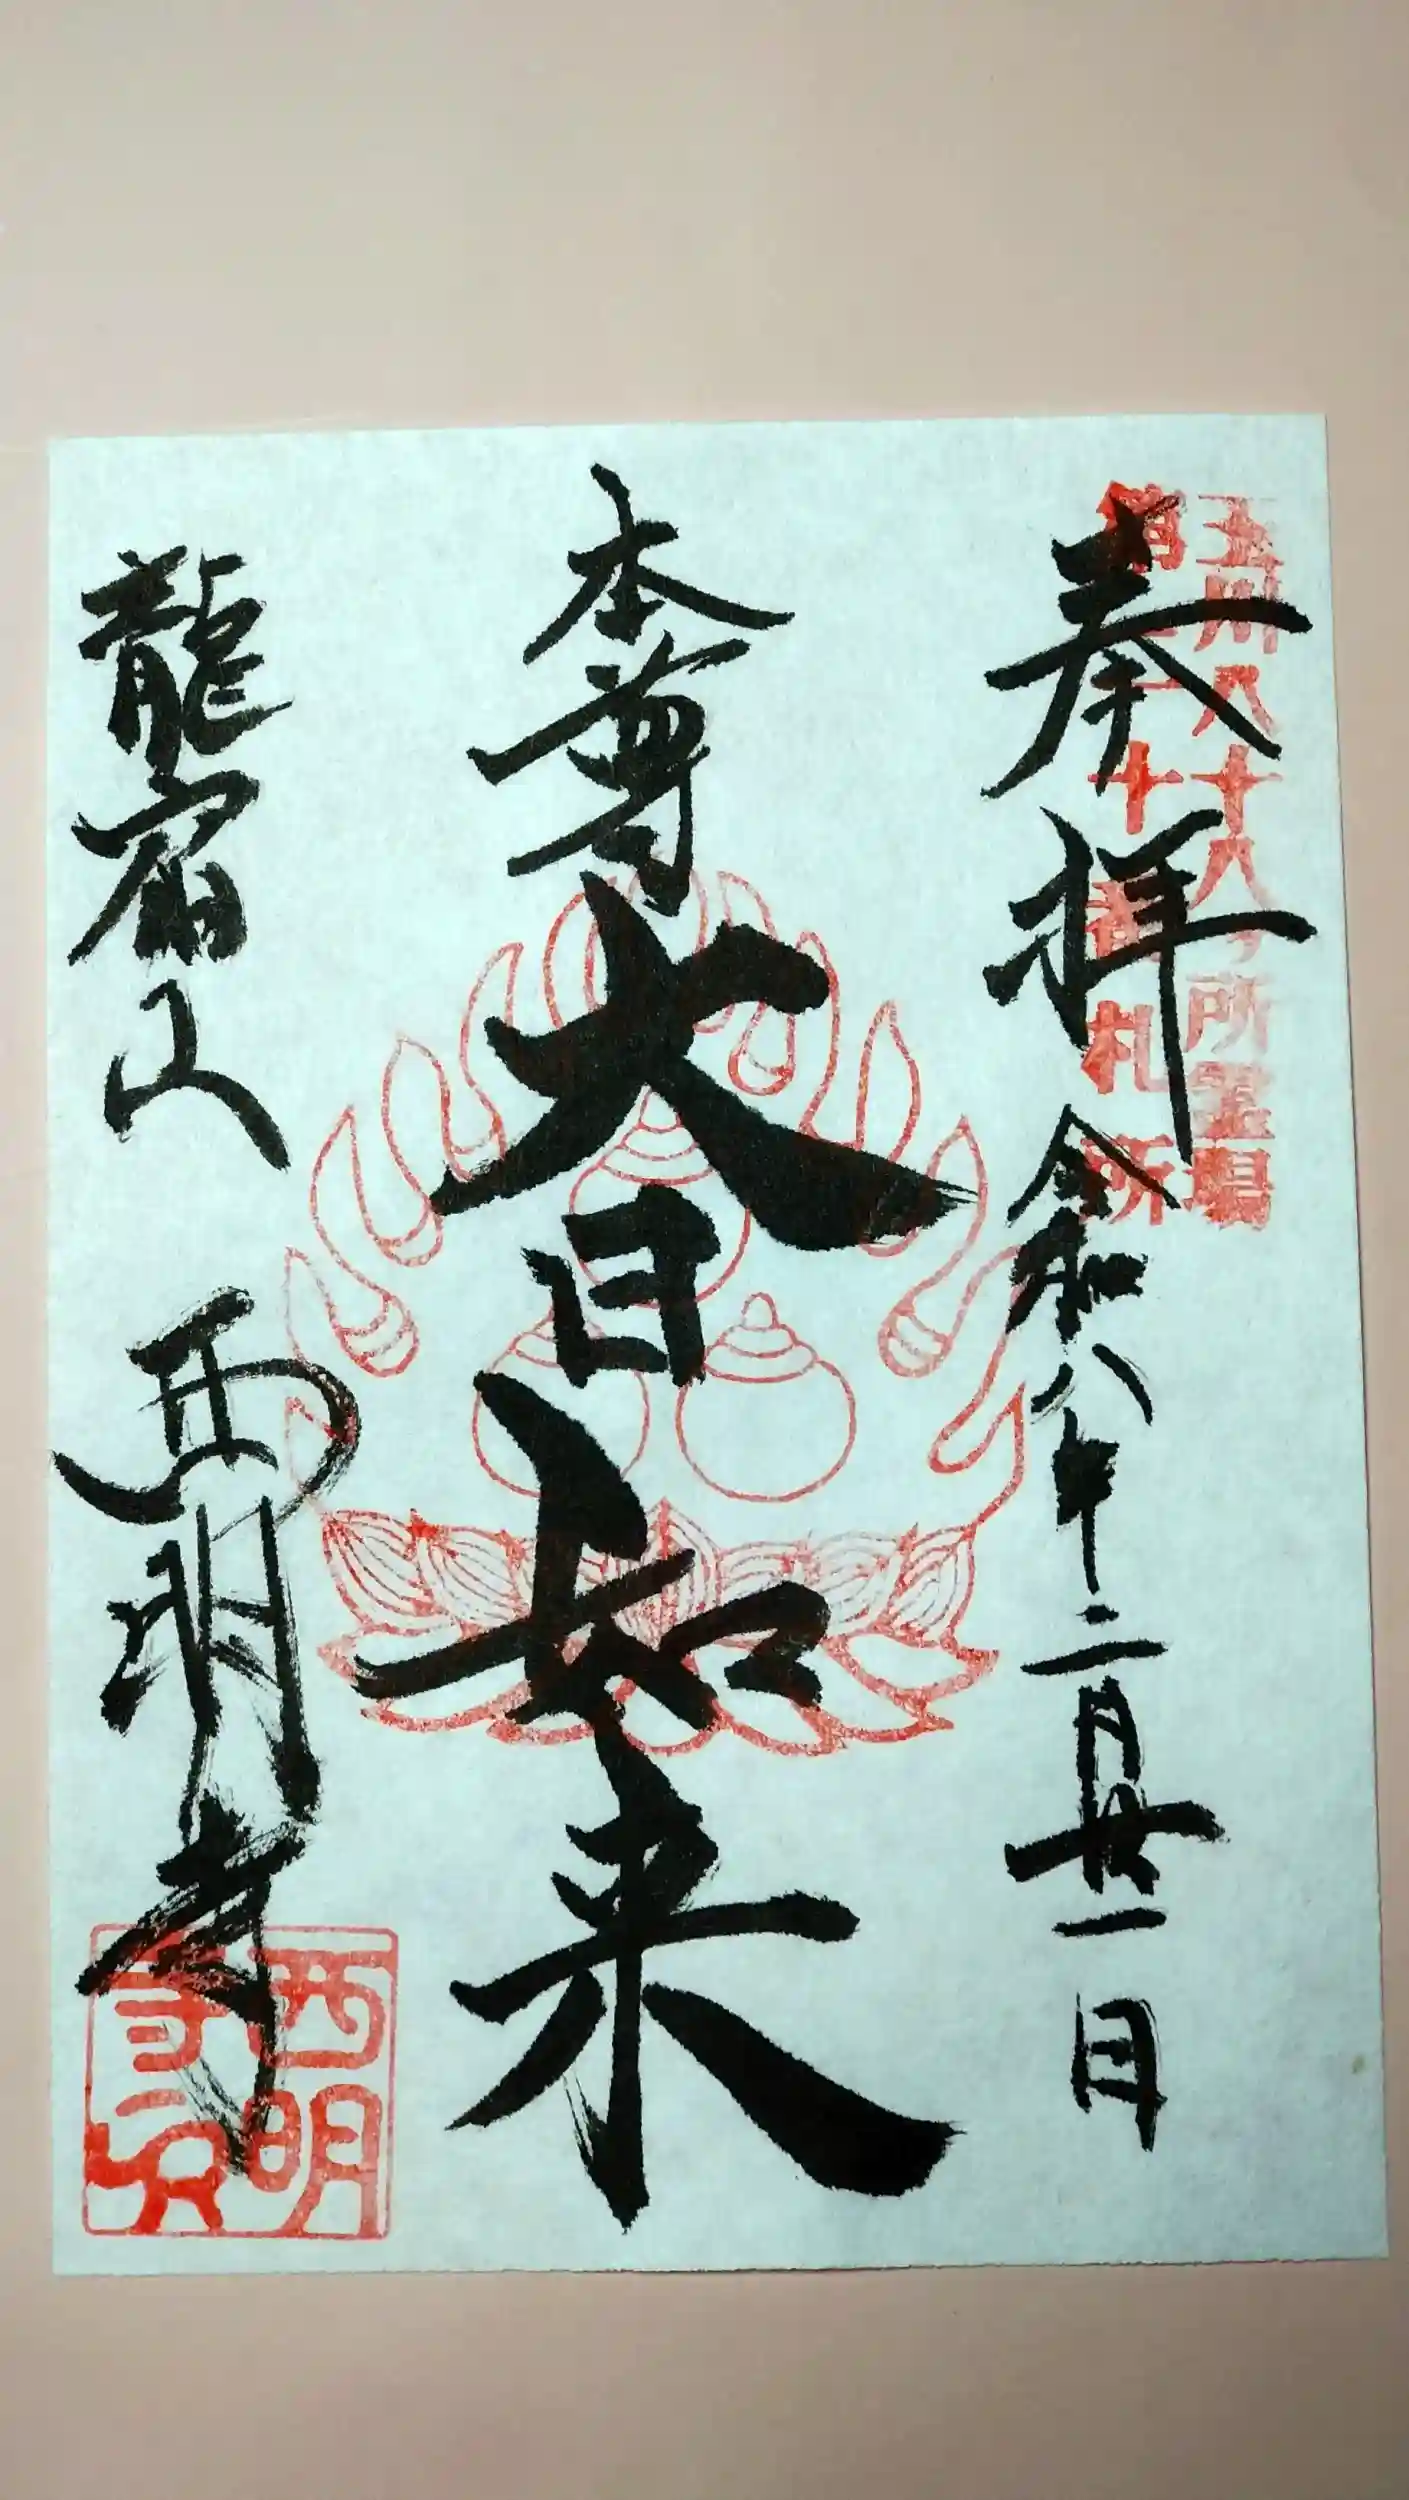 玉川八十八ヶ所霊場
第二十番札所
奉拝 令和八年二月廿一日
本尊 大日如来
龍宿山 西明寺
西明